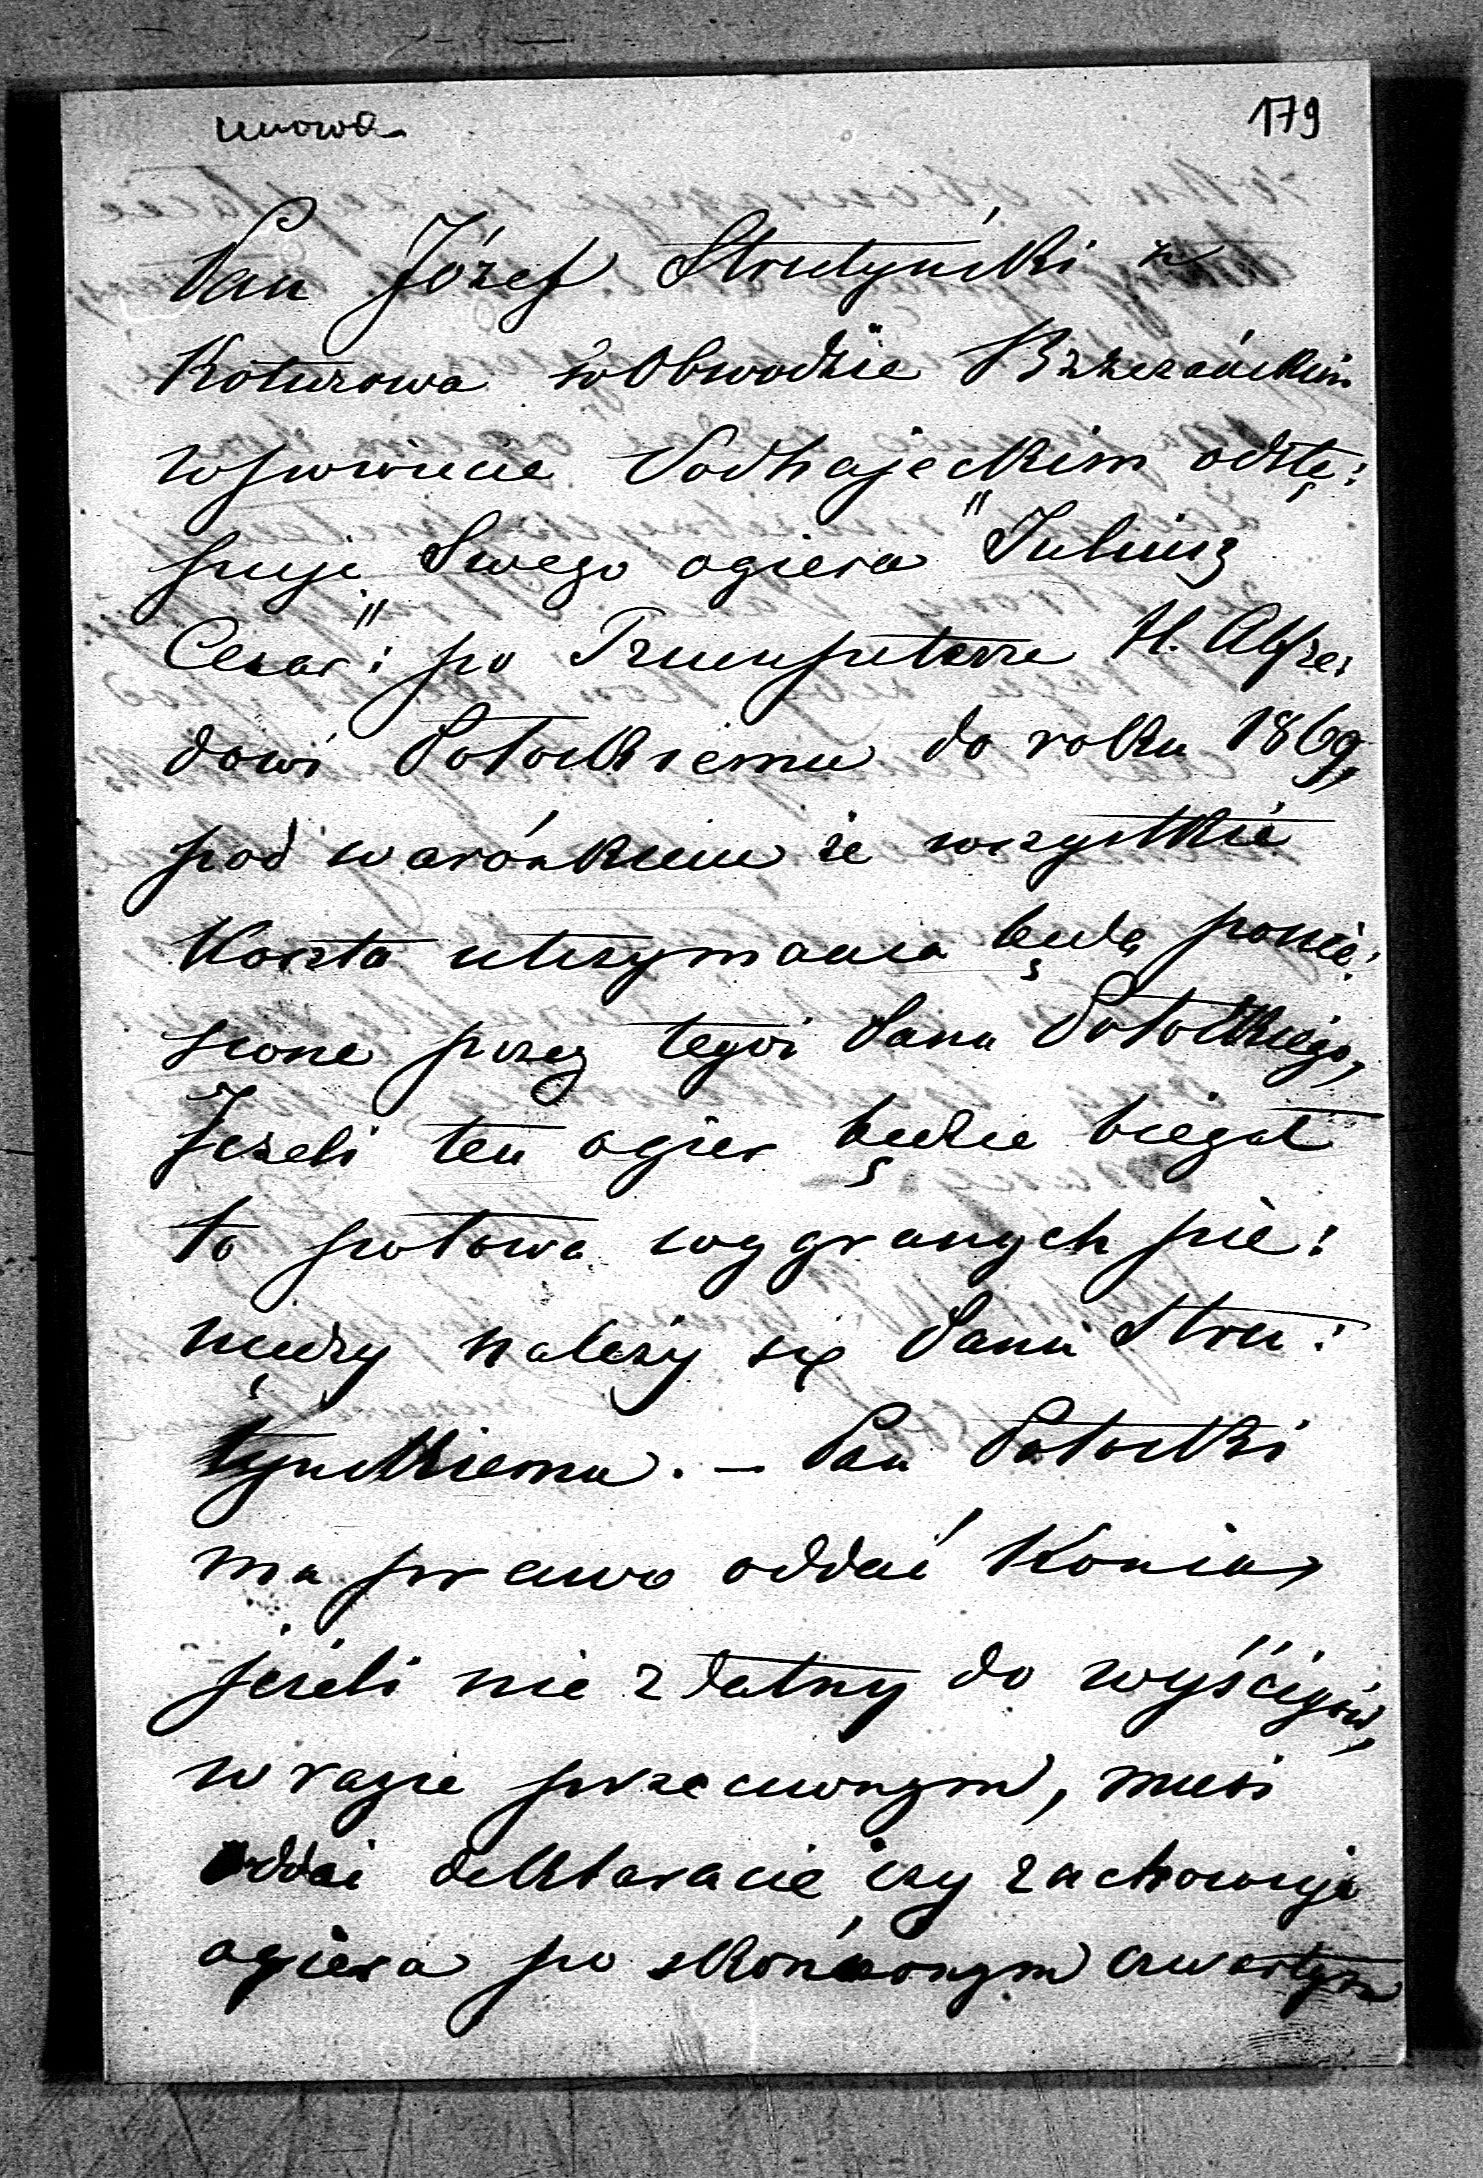 umowa
179
Pan Józef Strutyński z
Koturowa w Obwodzie Brzeżańskim
w powiecie Podhajeckim odstę:
puje Swego ogiera "Juliusz
Cezar": po Trumpeterze H. Alfre:
dowi Potockiemu do roku 1869,
pod warónkiem że wszystkie
Koszta utrzymania będą ponie:
sione przez tegoż Pana Potockiego,
Jeżeli ten ogier będzie biegał
to połowa wygranych pie:
niędzy należy się Panu Stru:
tyńskiemu. — Pan Potocki
ma prawo oddać Konia,
jeżeli nie zdatny do wyścigów,
w razie przeciwnym, musi
oddać deklaracie czy zachowuje
ogiera po skończonym czwartym